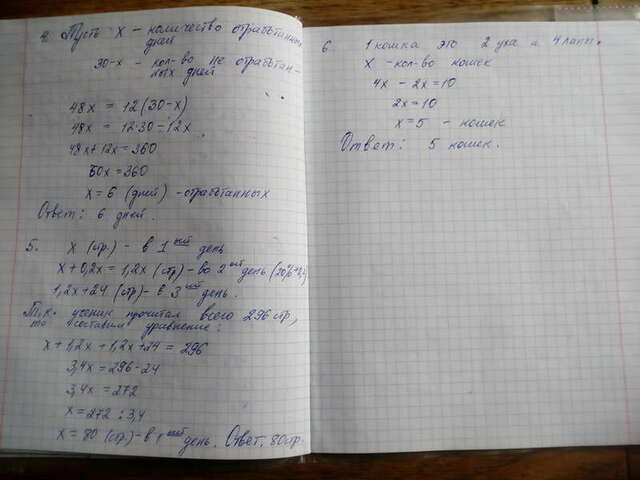 4. Пусть х - количество отработанных
дней
30-х - кол-во не отработан-
ных дней
48х = 12(30-х)
48х = 12·30-12х
48х+12х=360
60х=360
х=6 (дней) -отработанных
Ответ: 6 дней.
5. х (стр.) - в 1ый день
х+0,2х=1,2х (стр)-во 2ой день (20%=0,2)
1,2х+24 (стр)-в 3ий день.
Т.к. ученик прочитал всего 296 стр.,
то составим уравнение:
х+1,2х+1,2х+24=296
3,4х=296-24
3,4х=272
х=272:3,4
х=80 (стр)-в 1ый день. Ответ. 80стр.
6. 1 кошка это 2 уха и 4 лапы.
х -кол-во кошек
4х - 2х=10
2х=10
х=5 - кошек
Ответ: 5 кошек.